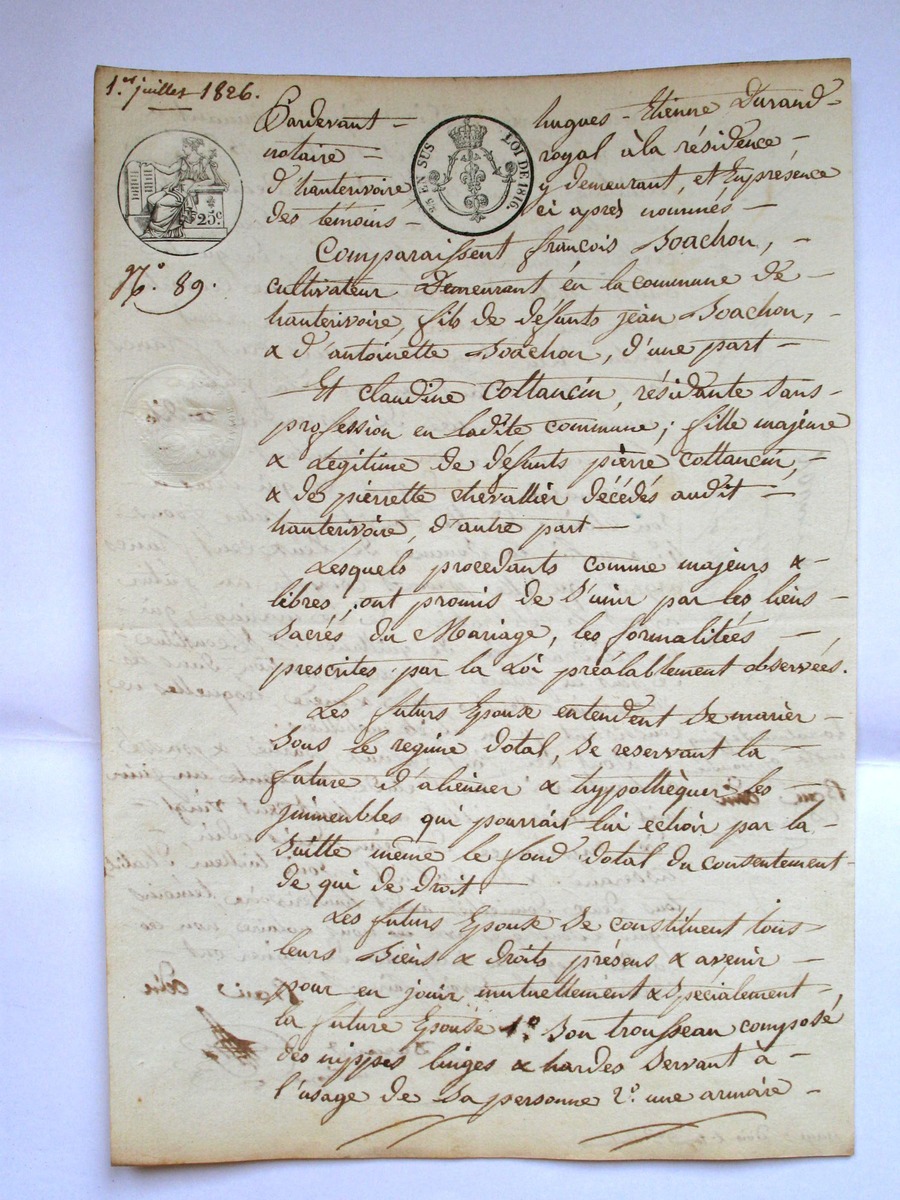 1.er juillet 1826.
Pardevant hugues Etienne Durand
notaire royal à la résidence
d'hauterivoire y demeurant, et En présence
des témoins ci après nommés
25 EN SUS LOI DE 1816.
25.c
N.o 89.
Comparaissent françois Boachon,
cultivateur Demeurant en la commune de
hauterivoire, fils de défunts jean Boachon,
& d'antoinette Boachon, d'une part
Et claudine Cottancin, résidante sans
profession en ladite commune; fille majeure
& légitime de défunts pierre cottancin,
& de pierrette chevallier décédés audit
hauterivoire, d'autre part
Lesquels procedants comme majeurs &
libres, ont promis de s'unir par les liens
sacrés du Mariage, les formalitées
prescrites par la Loi préalablement observées.
Les futurs Epoux entendent se marier
sous le regime dotal, se reservant la
future d'alienner & hyppothèquer les
immeubles qui pourrait lui echoir par la
suitte même le fond dotal du consentement
de qui de droit
Les futurs Epoux se constituent tous
leurs Biens & droits présens & avenir
pour en jouir mutuellement & Spécialement,
la future Epouse 1.o son trousseau composé
des nippes linges & hardes servant à
l'usage de sa personne 2.o une armoire